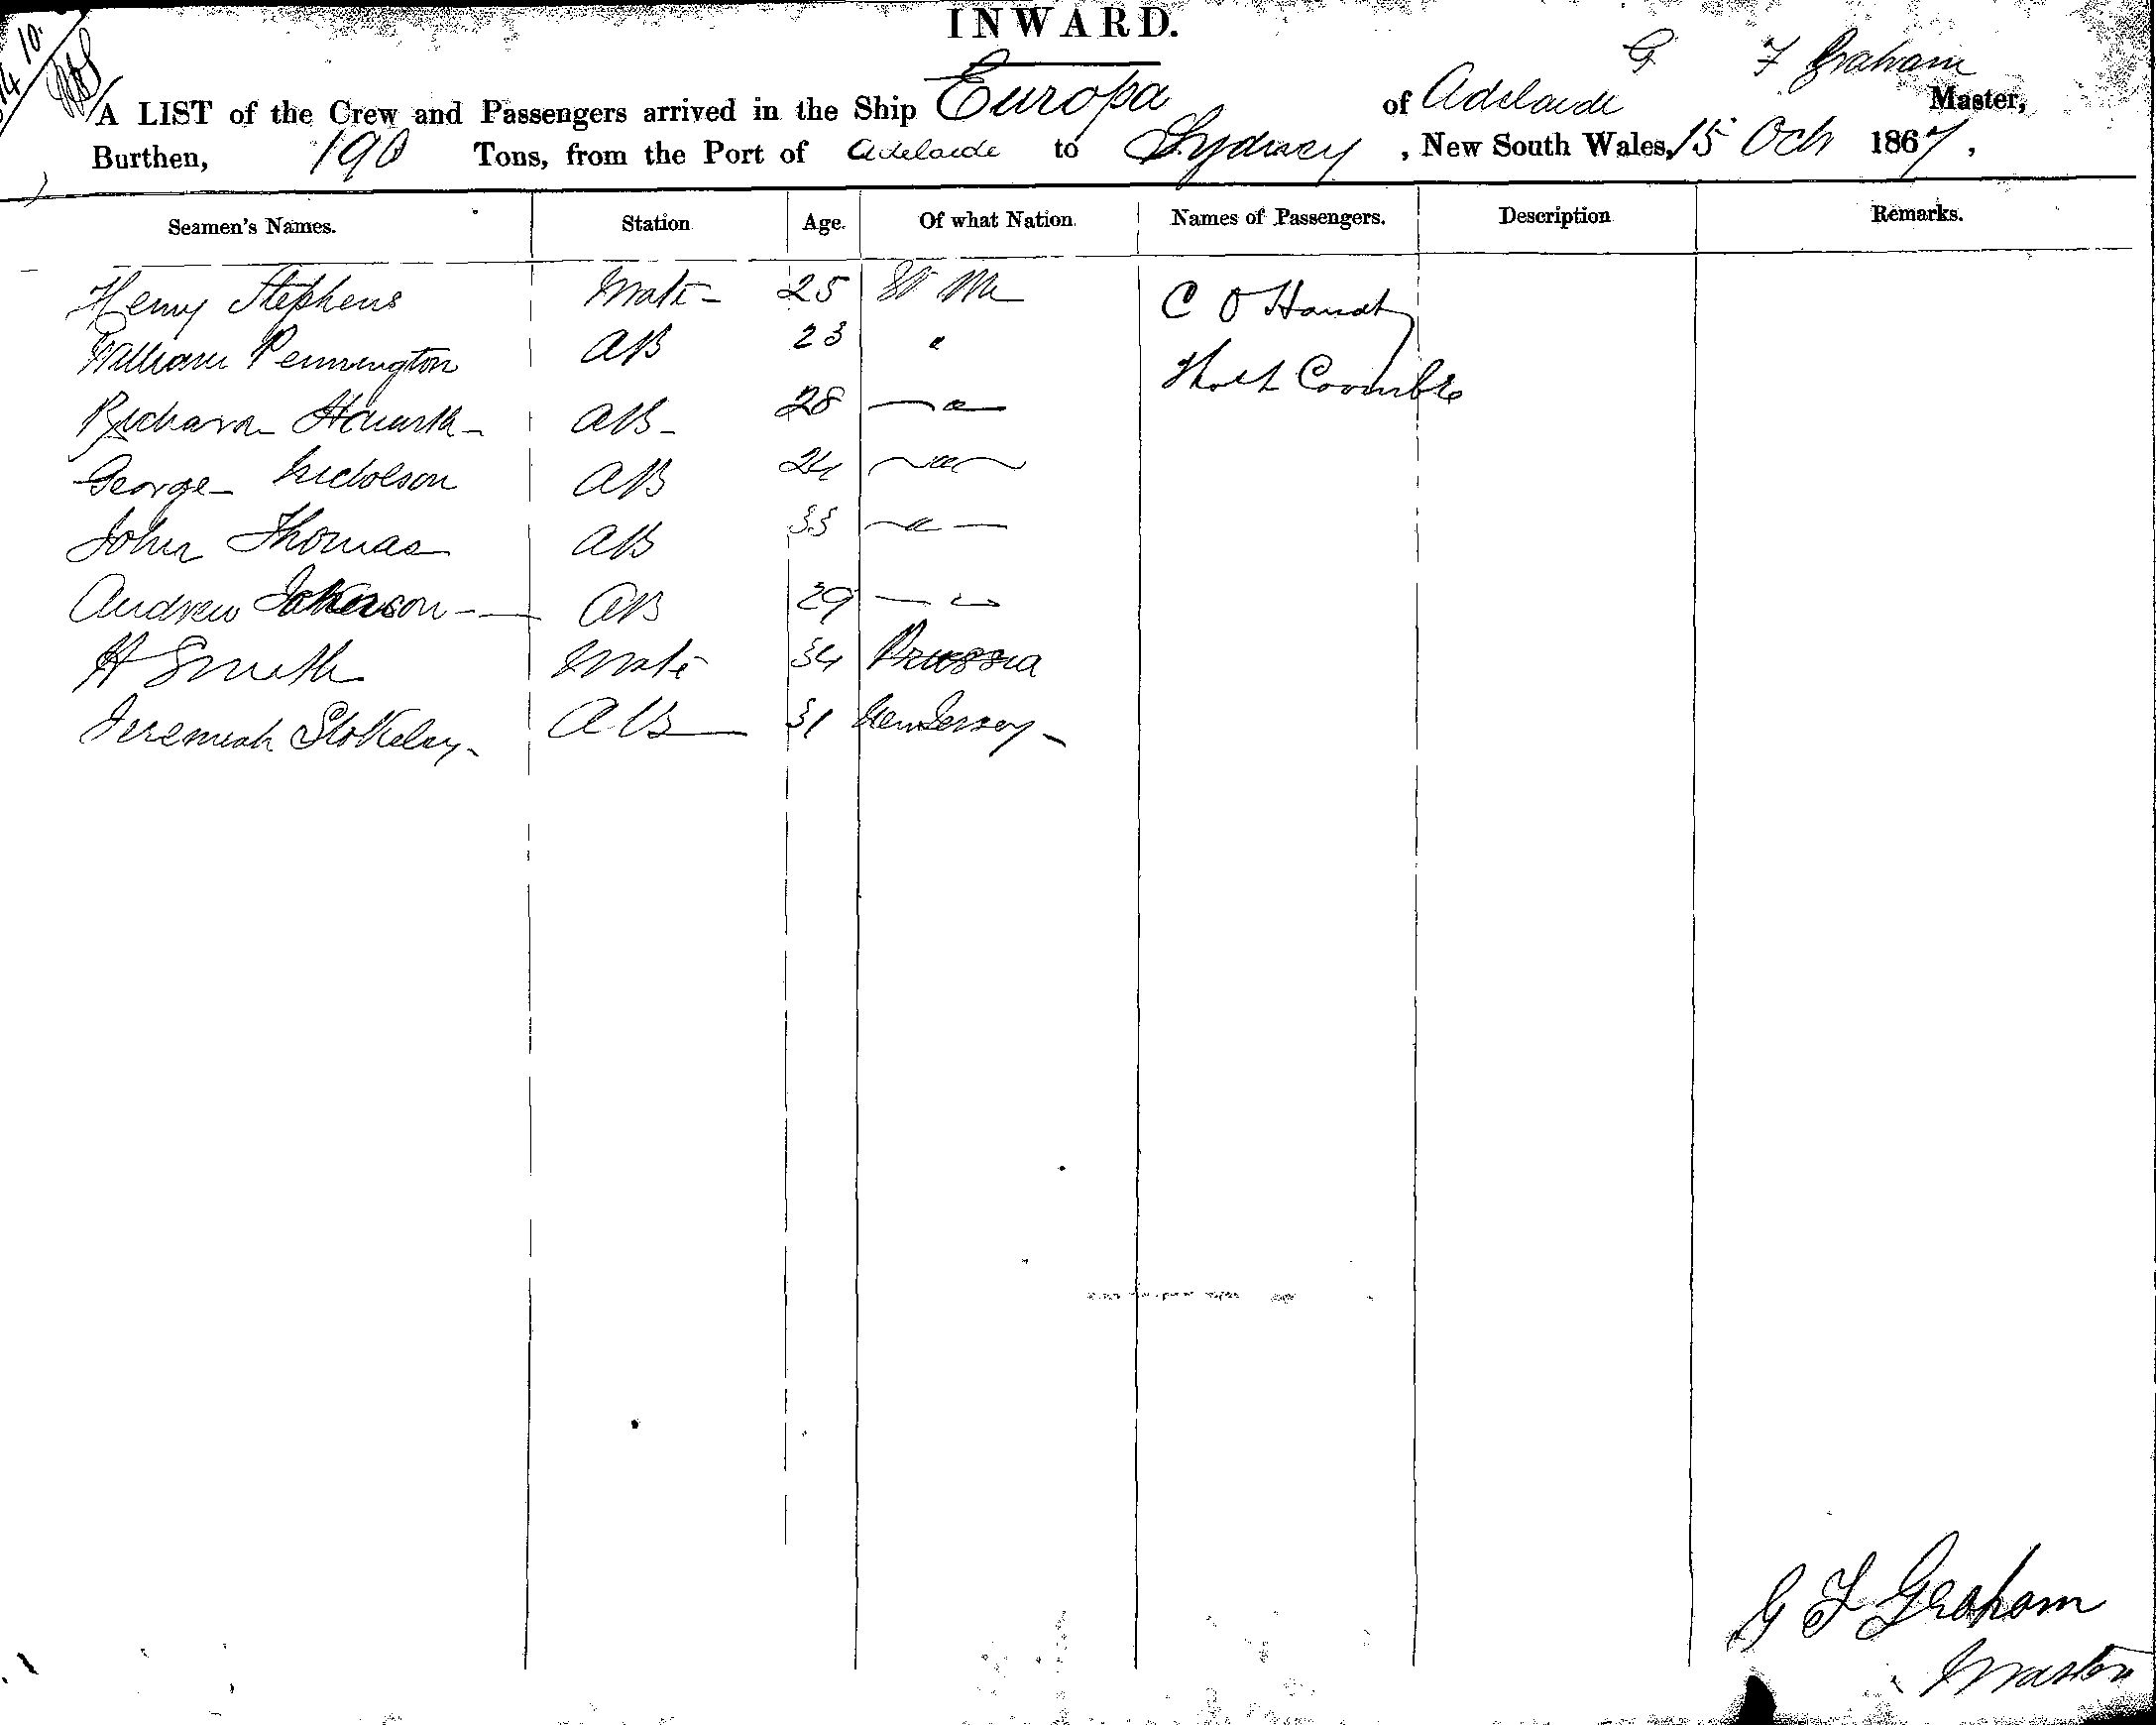 INWARD.
G F Graham
A LIST of the Crew and Passengers arrived in the Ship Europa of Adelaide Master,
Burthen, 190 Tons, from the Port of Adelaide to Sydney, New South Wales, 15 Oct 1867,
Seamen's Names. Station Age. Of what Nation. Names of Passengers. Description Remarks.
Henry Stephens Mate 25 C O
William Pennington AB 23 "
Richard Howarth AB 28 — " — Coombe
George Nicholson AB 24 — " —
John Thomas AB 33 — " —
Andrew AB 29 — " —
H Smith Mate 34 Prussia
Jeremiah Stokeley AB 31 New Jersey
G F Graham
Master